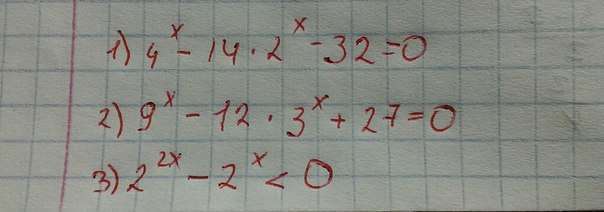 1) 4ˣ - 14 · 2ˣ - 32 = 0
2) 9ˣ - 12 · 3ˣ + 27 = 0
3) 2²ˣ - 2ˣ < 0